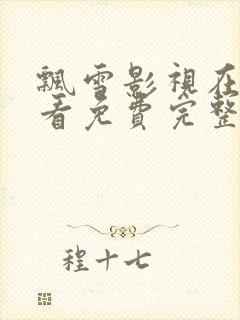 飄雪影視在
看免費完整
程十七